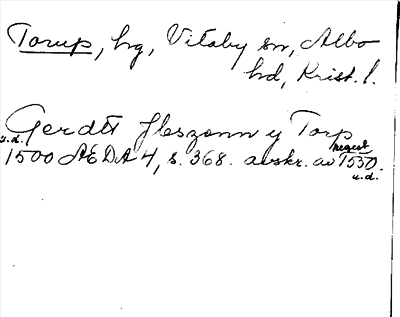 Torup, hg, Vitaby sn, Albo
hd, Krist. l.
Gerdtt Jleszonn y Torp
u.d. 1500 ÆDA 4, s. 368. avskr. av regest 1550.
u.d.